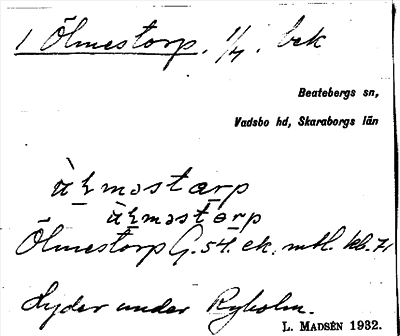 1 Ölmestorp. 1/4. bek
Beatebergs sn,
Vadsbo hd, Skaraborgs län
Ölmestorp G. 54. ek. mtl. kb. 71
Lyder under Ryholm.
L. MADSÉN 1932.